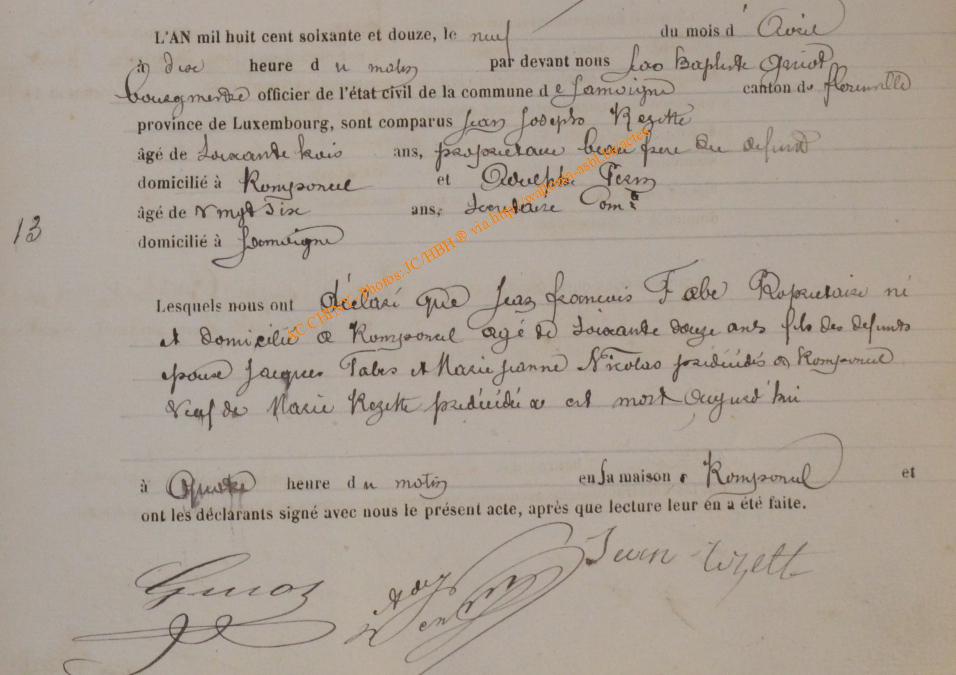 L'AN mil huit cent soixante et douze, le neuf du mois d' Avril
à dix heure d u matin par devant nous Jean Baptiste Guiot
bourgmestre officier de l'état civil de la commune d e Lamoigne canton de florenville
province de Luxembourg, sont comparus Jean Joseph Rezette
âgé de Soixante trois ans, propriétaire beau frère du défunt
domicilié à Romponcel et Adolphe
âgé de Vingt Six ans, Secrétaire Com
13
domicilié à Lamoigne
Lesquels nous ont déclaré que Jean françois Fabe Propriétaire né
et domicilié à Romponcel agé de Soixante douze ans fils des défunts
epoux Jacques Fabes et Marie Jeanne Nicolas prédécédés à Romponcel
Veuf de Marie Rezette prédécédée est mort aujourd'hui
à Quatre heure d u matin en sa maison à Romponcel et
ont les déclarants signé avec nous le présent acte, après que lecture leur en a été faite.
Guiot
Jean
AC CHINY - Photos: JC/HBH ® via http://wallonia-asbl.be/actes